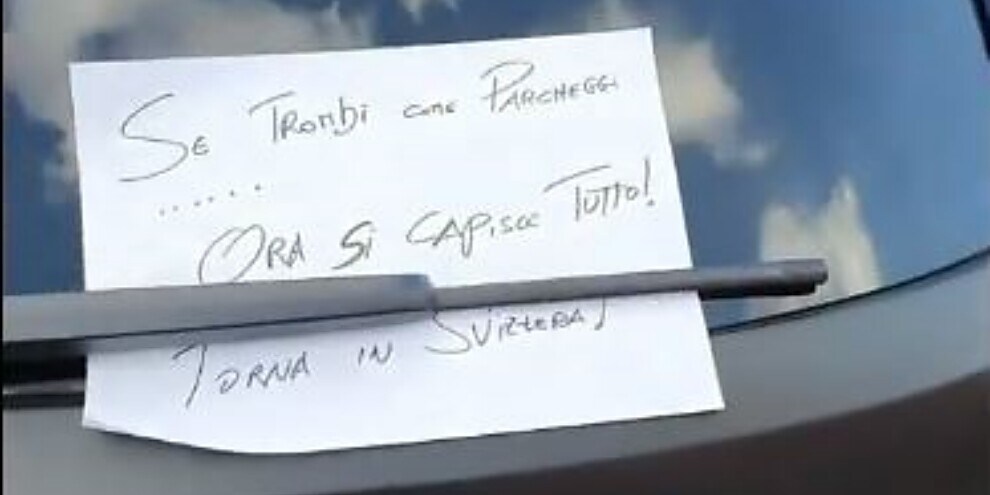 SE TROMBI come PARCHEGGI
......
ORA Si CAPiSCE TUTTO!
TORNA IN SVIZZERA!